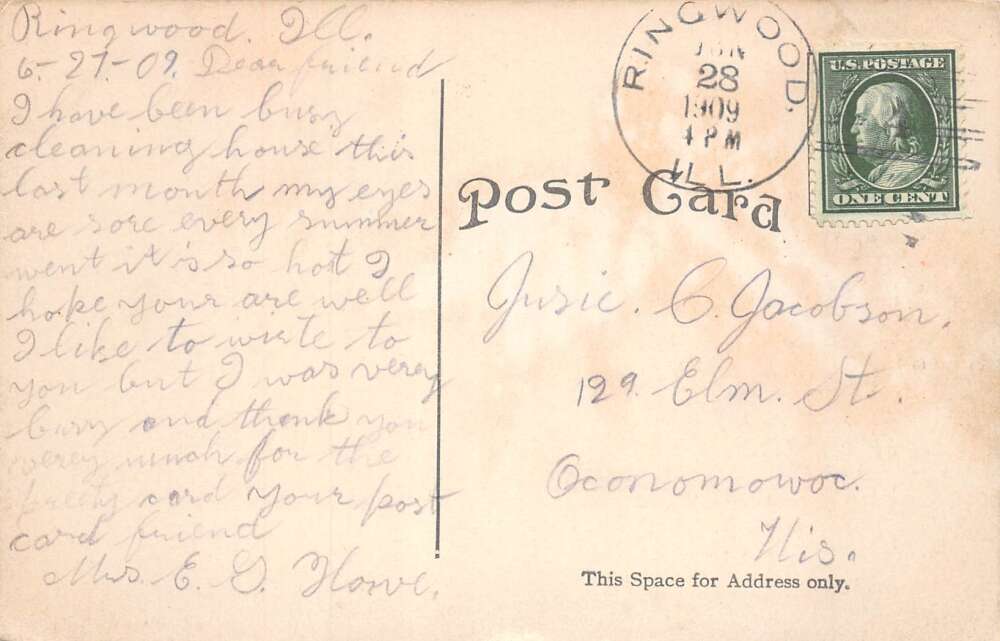 Ringwood. Ill.
6-27-09. Dear friend
I have been busy
cleaning house this
last month my eyes
are sore every summer
went it is so hot I
hope your are well
I like to wirte to
you but I was verey
busy and thank you
verey much for the
prety card your post
card friend
Mrs E. G. Howe.
RINGWOOD.
JUN
28
1909
4 PM
ILL.
U.S. POSTAGE
ONE CENT
Post Card
Jusie. C. Jacobson.
129. Elm. St.
Oconomowoc.
Wis.
This Space for Address only.